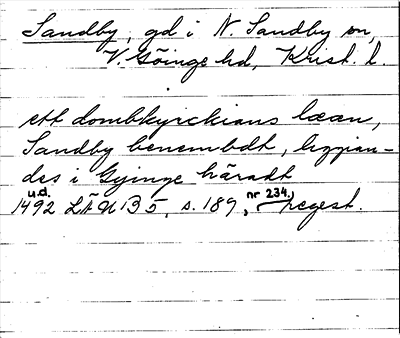 Sandby, gd i N. Sandby sn,
V. Göinge hd, Krist. l.
ett dombkyrckians læan,
Sandby benembdt, liggian-
des i Gyinge häradt
u.d. nr 234.
1492 LÄU B 5, s. 189, regest.